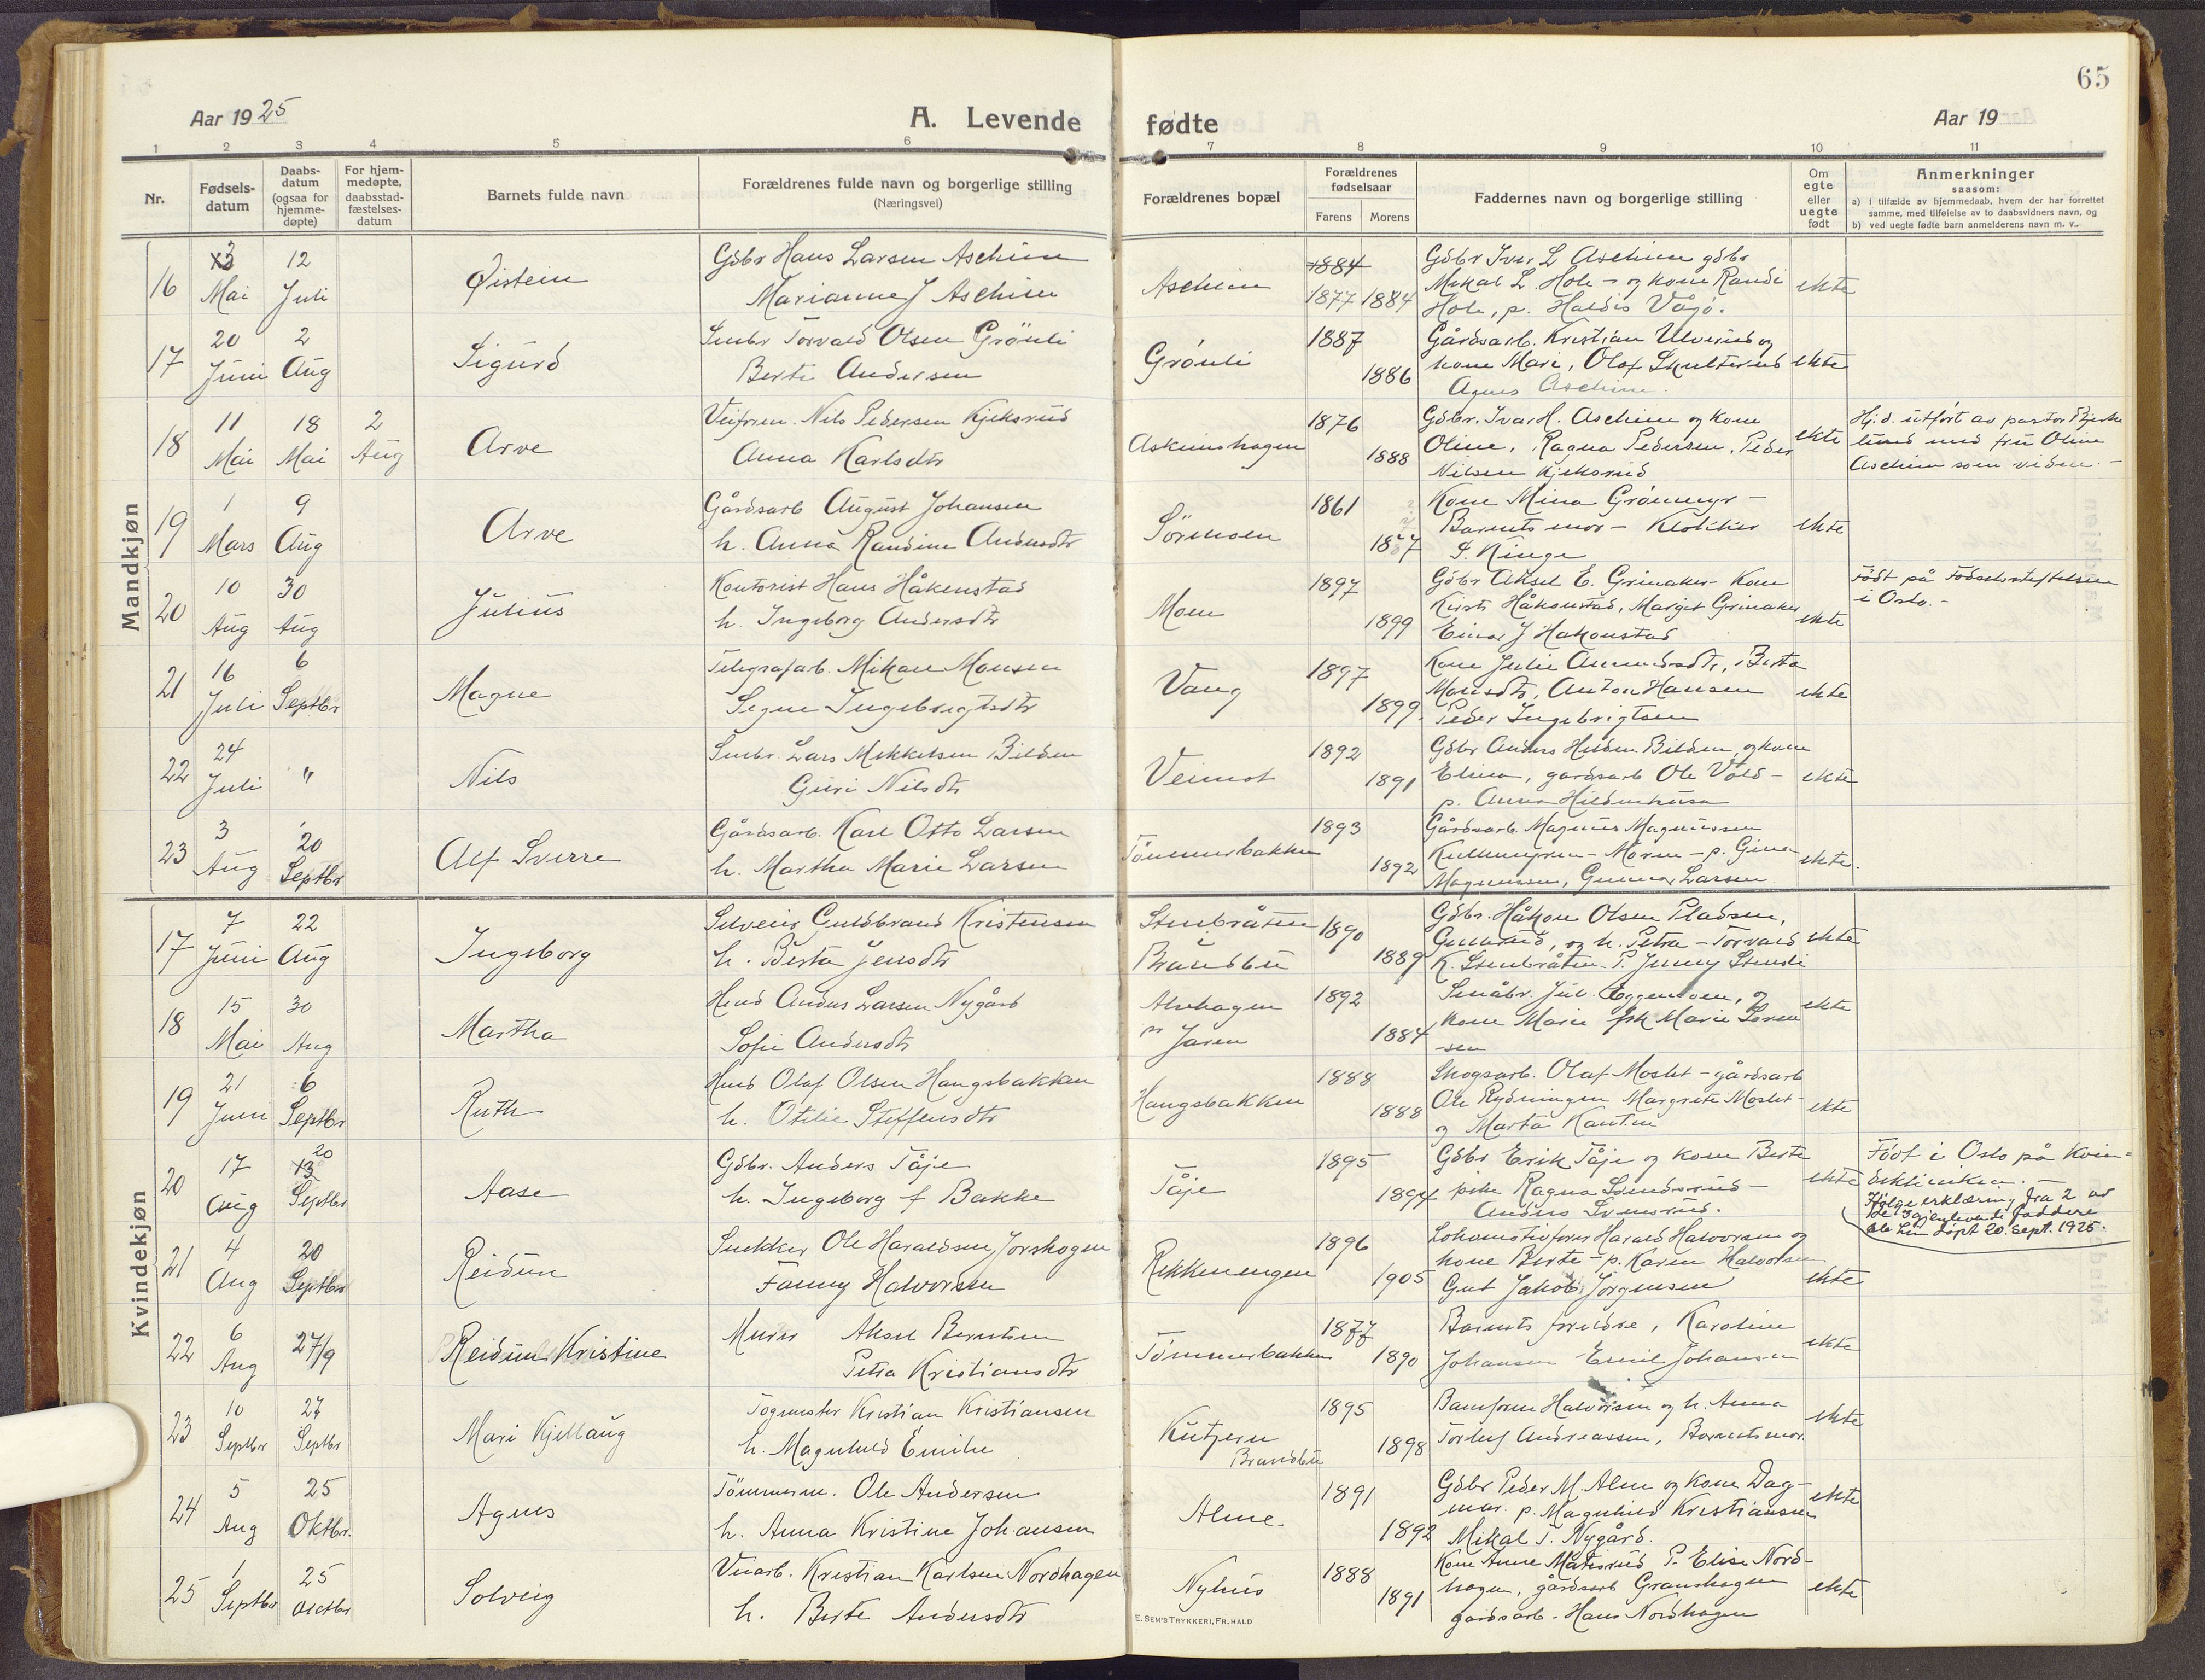 65
Aar 1925
A. Levende fødte
Aar 19
1 2 3 4 5 6 7 8 9 10 11
Nr.
Fødsels-datum
Daabs-datum (ogsaa for hjemme-døpte)
For hjem-medøpte, daabsstad-fæstelses-datum
Barnets fulde navn
Forældrenes fulde navn og borgerlige stilling
(Næringsvei)
Forældrenes bopæl
Forældrenes fødselsaar
Farens Morens
Faddernes navn og borgerlige stilling
Om egte eller uegte født
Anmerkninger
saasom:
a) i tilfælde av hjemmedaab, hvem der har forrettet samme, med tilføielse av to daabsvidners navn, og
b) ved uegte fødte barn anmelderens navn m. v.
Mandkjøn
16
3 Mai
12 Juli
Øistein
Gdbr Hans Larsen Aschim
Marianne J Aschim
Aschim
1884
1877 1884
Gdbr Iver L Aschim gdbr
Mikal L. Hole - og kone Randi
Hole, p. Haldis Vøjø.
ekte
17
20 Juni
2 Aug
Sigurd
Smbr Torvald Olsen Grönli
Berte Andersen
Grönli
1887
1886
Gårdsarb. Kristian Ulverud og
kone Mari, Olaf Skulterud
Agnes Aschim
ekte
18
11 Mai
18 Mai
2 Aug
Arve
Veiform. Nils Pedersen Kjeksrud
Anna Karlsdtr
Askimshagen
1876
1888
Gdbr. Ivar H. Aschim og kone
Oline, Ragna Pedersen, Peder
Nilsen Kjeksrud
ekte
Hj.d. utført av pastor Bjerke
lund med fru Oline
Aschim som viden. -
19
1 Mars
9 Aug
Arve
Gårdsarb August Johansen
h. Anna Randine Andersdtr
Sörmoen
1861
Kone Mina Grönmyr -
Barnets mor - Klokker
S. Ringe
ekte
20
10 Aug
30 Aug
Julius
Kontorist Hans Håkenstad
h. Ingeborg Andersdtr
Moen
1897
1899
Gdbr Aksel E. Grinaker - Kone
Kirsti Håkonstad, Margit Grinaker
Einar J Hakonstad
ekte
Födt på Födselsstiftelsen
i Oslo. -
21
16 Juli
6 Septbr
Magne
Telegrafarb. Mikael Monsen
Segne Ingebrigtsdtr
Vang
1897
1899
Kone Julie Amundsdtr, Berta
Monsdtr, Anton Hansen
Peder Ingebrigtsen
ekte
22
24 Juli
"
Nils
Smbr. Lars Mikkelsen Bilden
Guri Nilsdtr
Velmot
1892
1891
Gdbr Anders Hilden Bilden, og kone
Elina, gardsarb Ole Vold -
p. Anna Hildenhusa
ekte
23
3 Aug
20 Septbr
Alf Sverre
Gårdsarb. Karl Otto Larsen
h. Martha Marie Larsen
Tömmerbakken
1893
1892
Gårdsarb. Magnus Magnussen
Kulkmyren - Moren - p. Gina
Magnussen, Gunnar Larsen
ekte.
Kvindekjøn
17
7 Juni
22 Aug
Ingeborg
Selveier Guldbrand Kristensen
h. Berta Jensdtr
Stenbråten
Brandbu
1890
1889
Gdbr. Håkon Olsen Pladsen,
Gullerud, og h. Petra - Torvald
K. Stenbråten. P. Jenny Stensli
ekte
18
15 Mai
30 Aug
Martha
Hmd Anders Larsen Nygård
Sofie Andersdtr
Alvhagen
pr Jaren
1892
1884
Småbr. Jul. Eggemoen, og
kone Marie pik Marie Loren
sen
ekte
19
21 Juni
6 Septbr
Ruth
Hmd Olaf Olsen Haugsbakken
h. Otilie Steffensdtr
Haugsbakken
1888
1888
Skogsarb. Olaf Moslet - gårdsarb
Ole Rydningen Margrete Moslet -
og Marta Kanten
ekte
20
17 Aug
13 20 Septbr
Aase
Gdbr. Anders Tåje
h. Ingeborg f Bakke
Tåje
1895
1894
Gdbr Erik Tåje og kone Berte
pike Ragna Svendsrud -
Anders Svensrud.
ekte
Födt i Oslo på Kvin-
deklinikken. -
Ifölge erklæring fra 2 av
de gjenlevende faddere
ble hun döpt 20. sept. 1925.
21
4 Aug
20 Septbr
Reidun
Snekker Ole Haraldsen Jorshagen
Fanny Halvorsen
Rekkenengen
1896
1905
Lokomotivförer Harald Halvorsen og
kone Berte - p. Karen Halvorsen
Gut Jakob Jørgensen
ekte
22
6 Aug
27/9
Reidun Kristine
Murer Aksel Berntsen
Petra Kristiansdtr
Tömmerbakken
1877
1890
Barnets foreldre, Karoline
Johansen Emil Johansen
ekte
23
10 Septbr
27 Septbr
Mari Kjellaug
Togmester Kristian Kristiansen
h. Magnhild Emilie
Kutjern
Brandbu
1895
1898
Baneform Halvorsen og h. Anna
Torleif Andreassen, Barnets mor.
ekte
24
5 Aug
25 Oktbr.
Agnes
Tömmerm. Ole Andersen
h. Anna Kristine Johansen
Alme.
1891
1892
Gdbr Peder M. Alm og kone Dag-
mar. p. Magnhild Kristiansen
Mikal T. Nygård.
ekte
25
1 Septbr
25 Octbr
Solveig
Veiarb. Kristian Karlsen Nordhagen
h. Berte Andersdtr
Nyhus
1888
1891
Kone Anne Måtsrud P. Elise Nord-
hagen, gårdsarb Granshagen
gardsarb. Hans Nordhagen
ekte
E. SEM'S TRYKKERI, FR.HALD